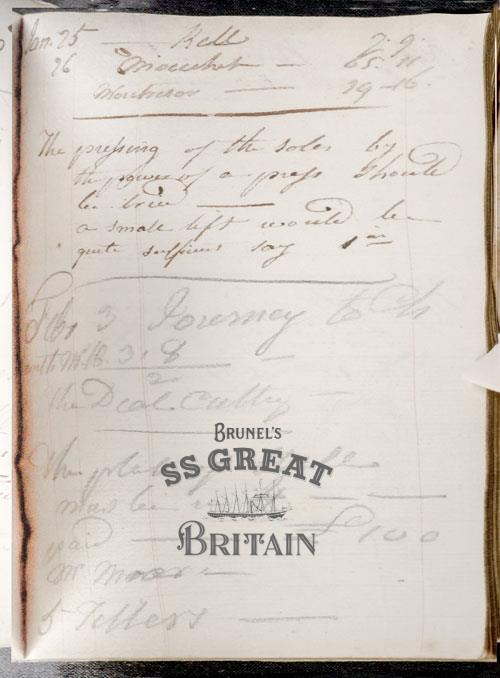 Jan. 25 — Kell 7.9.
26 — 65.11
Montresor — 29-16.
The pressing of the soles by
the power of a press should
be tried —
a small lift would be
quite sufficient say 1 in
Feb 3 Journey to Ch
with Mr B. 3.8 —
2
The Deal Cutting —
The
must be
paid — £100
Mr Moor —
5 Fellers —
BRUNEL'S
SS GREAT
BRITAIN